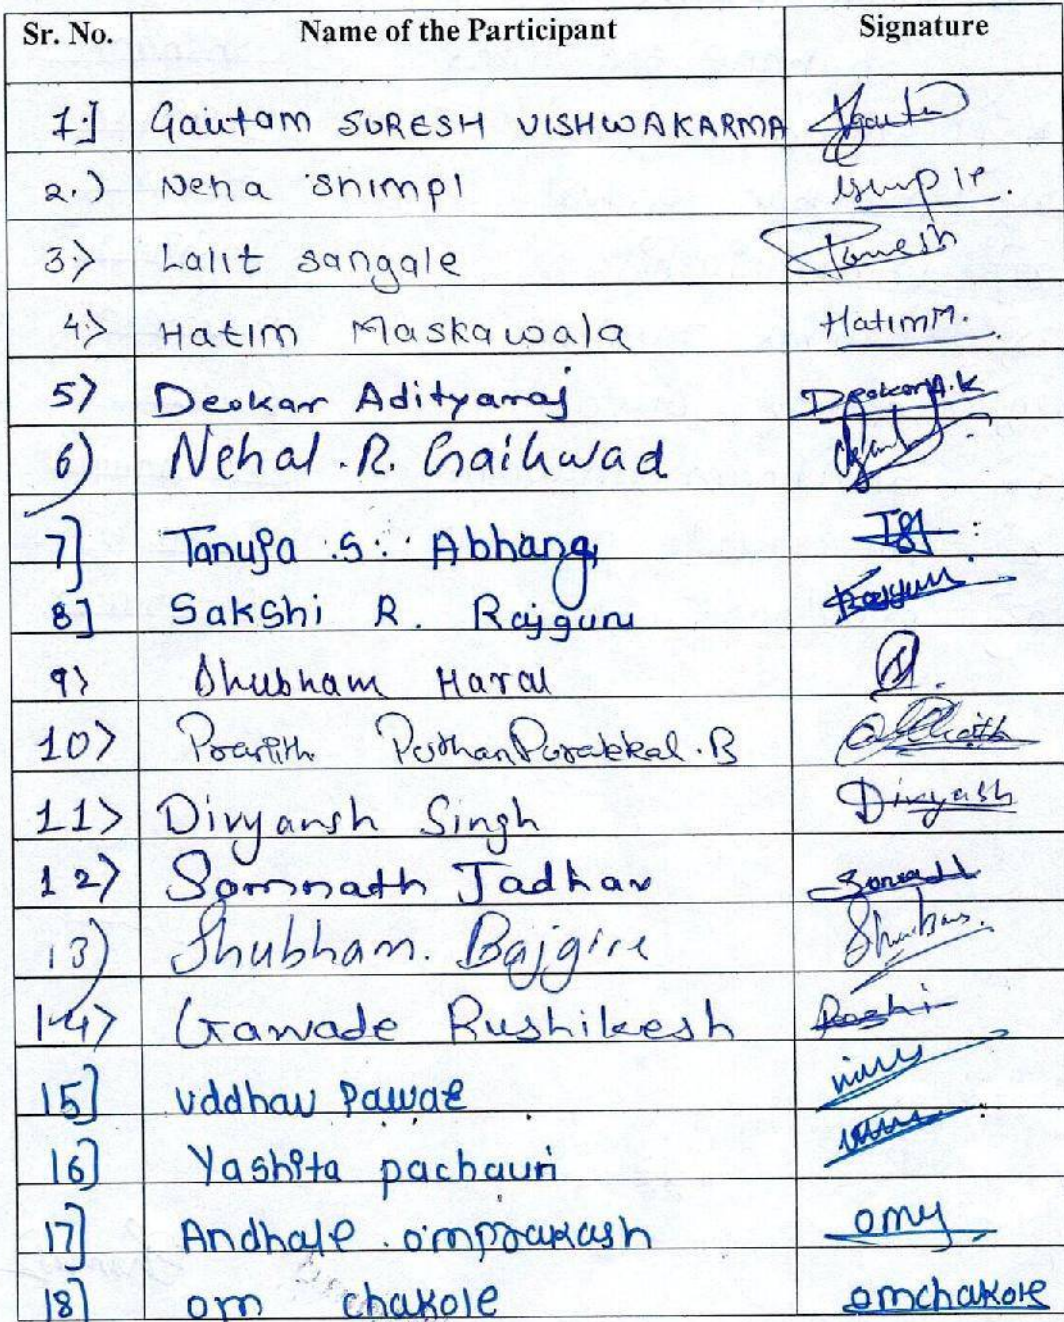 Sr. No. Name of the Participant Signature
1] Gautam SURESH VISHWAKARMA
2.) Neha Shimpi
3> Lalit sangale
4> Hatim Maskawala HatimM.
5) Deokar Adityaraj Deokar A.K
6) Nehal .R. Gaikwad
7] Tanuja .S. Abhang
8] Sakshi R. Rajguru Rajguru
9> Shubham Haral
10> Puthan Purakkal.B
11> Divyansh Singh Divyash
12> Somnath Jadhav
13) Shubham. Bajgire
14> Gawade Rushikesh Rushi
15] Uddhav Pawar
16] Yashita pachauri
17] Andhale omprakash omy
18] om chakole omchakole